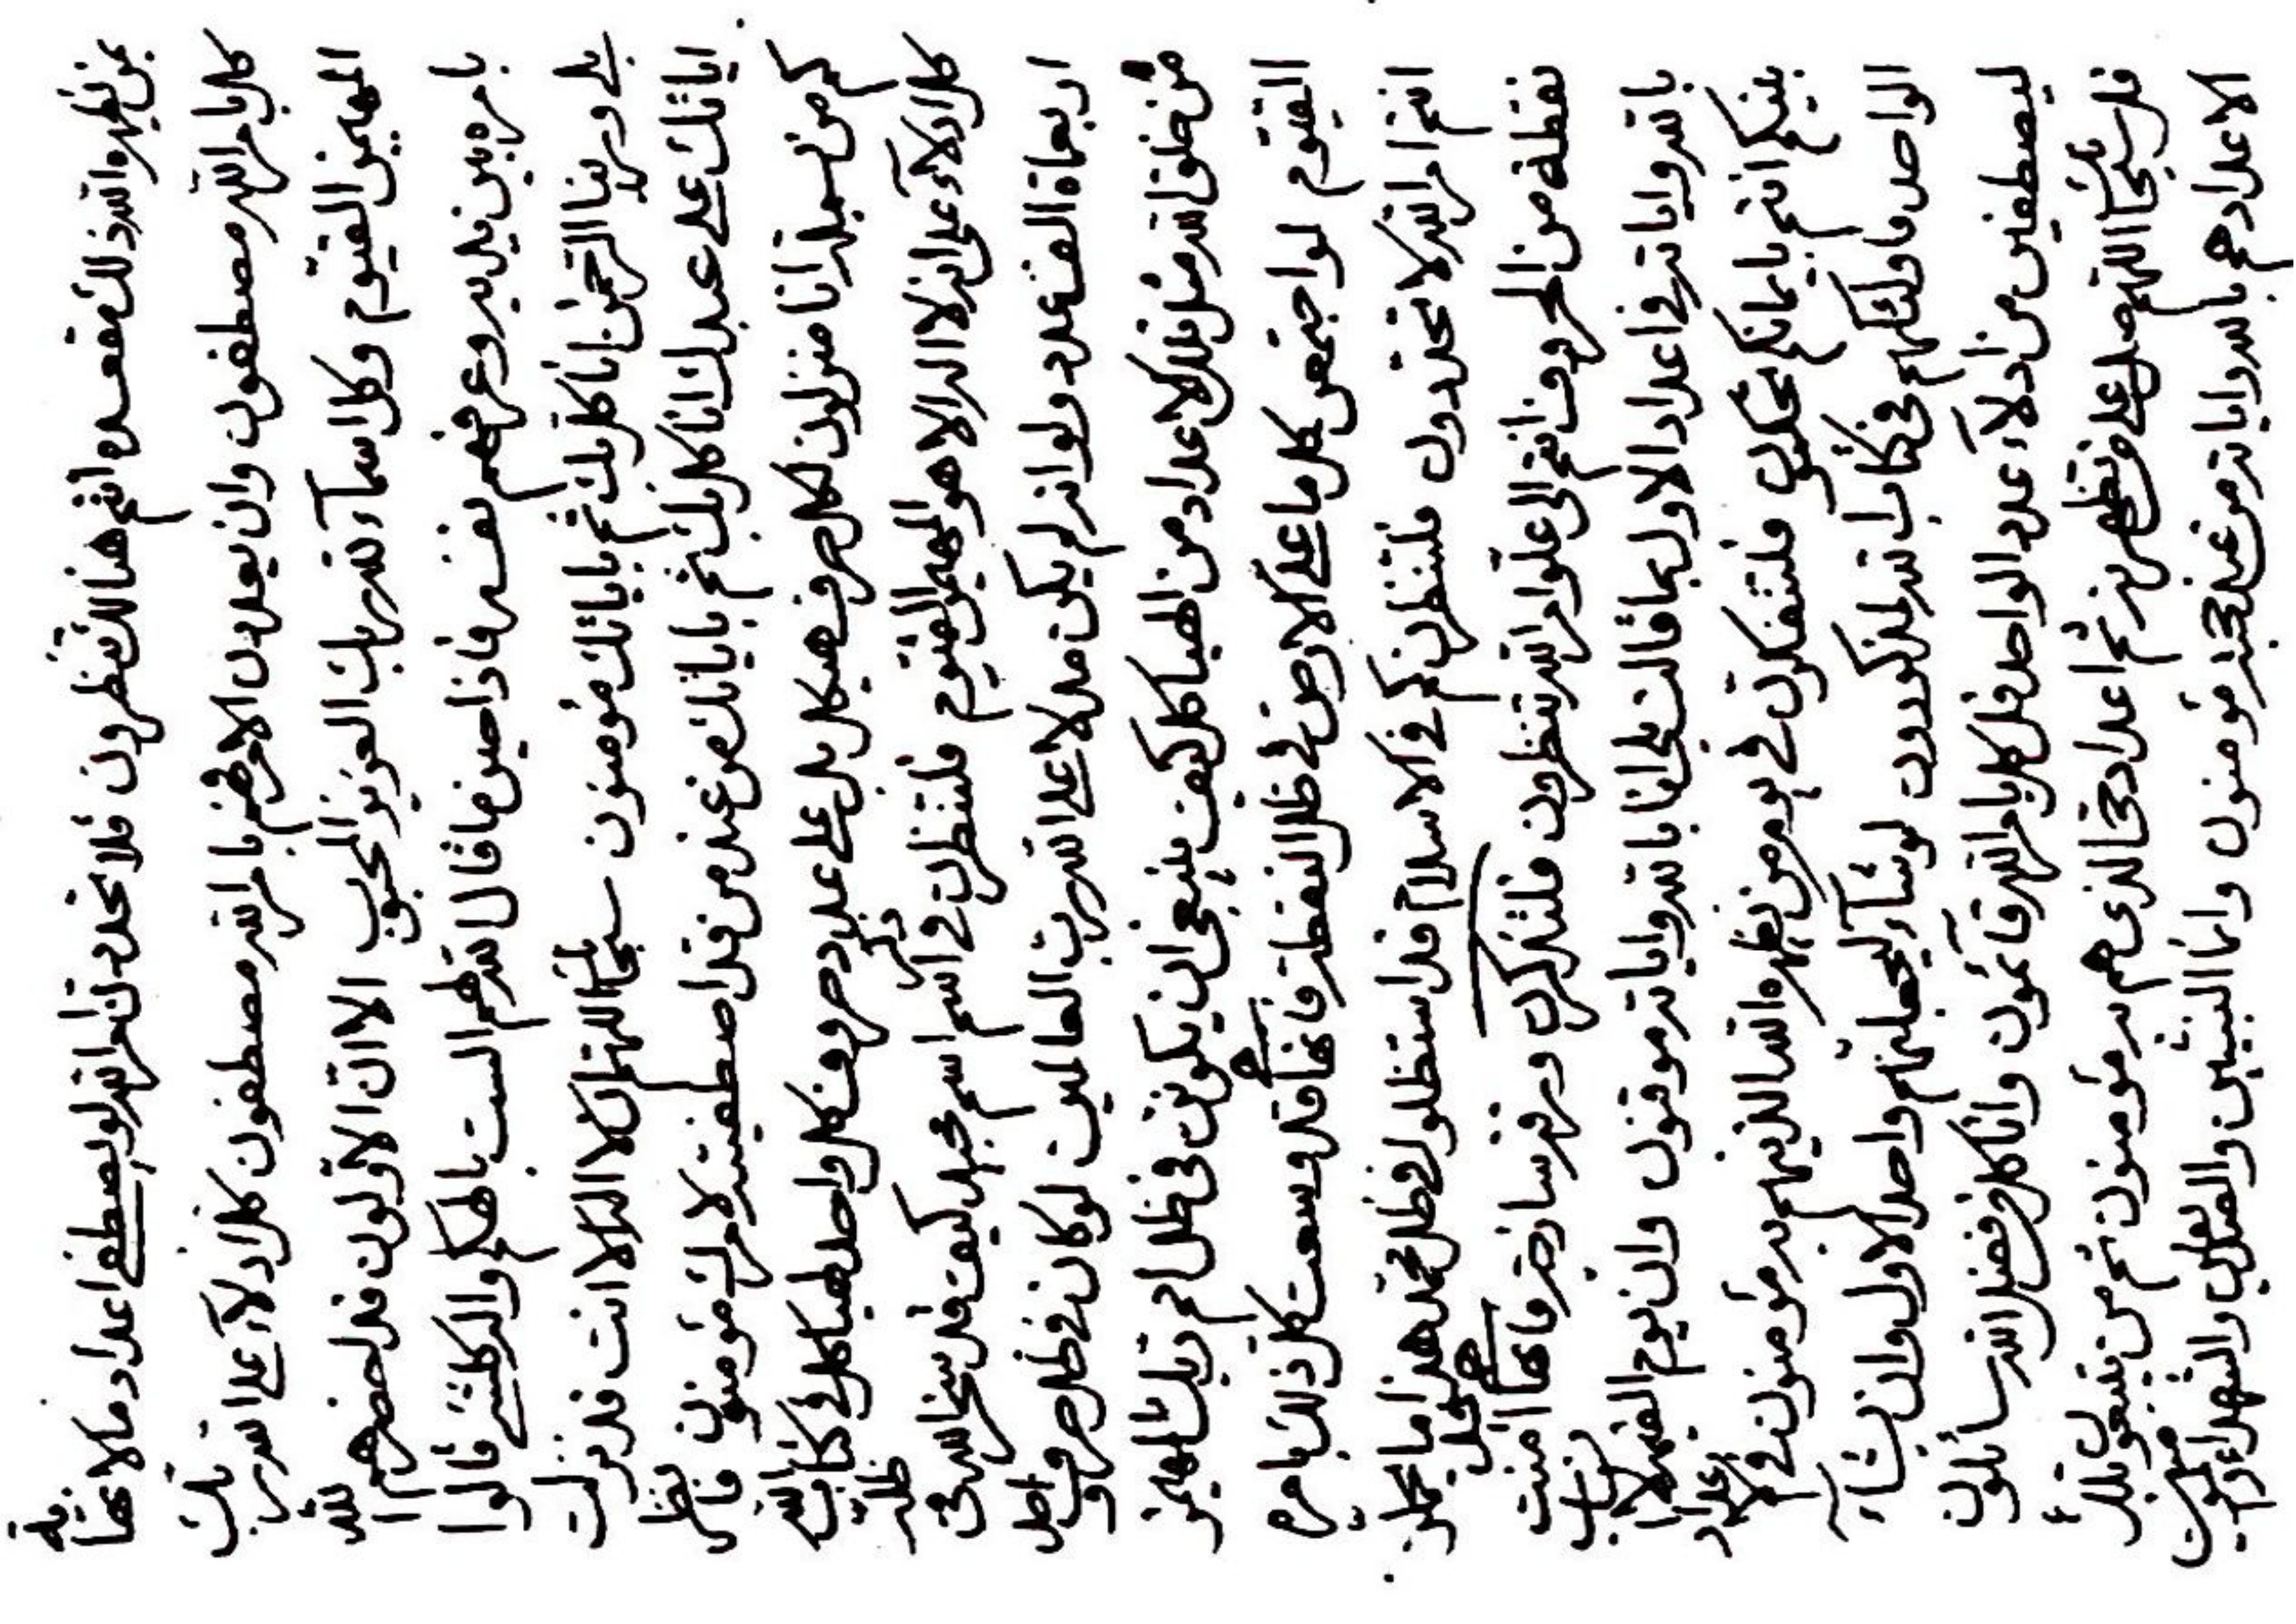 بمن يظهره الله ذلك مقعده وانتم هنالك تنظرون فلا تحددن امر الله لو يصطفى اعداد ما لا نهاية
كل بامر الله مصطفون وان يعدلن الامر فهم بامر الله مصطفون كل ادلاء على الله ربك
المهيمن القيوم وكل اسماء لله ربك العزيز المحبوب الا ان الاولون قد احضرهم الله
بامره بين يديه وعرفهم نفسه فاذا حين ما قال الله لهم الست بالهكم واله كلشئ قالوا
بلى وربنا الرحمن انا كل بك ثم باياتك مؤمنون سبحانك اللهم ان لا اله الا انت قد نزلت
اياتك على عبدك انا كل بك ثم باياتك من عند من قد اصطفيته لامرك مؤمنون فانظر
كم من سبل انا منزلون لكل حروف هيكل بل على عدد حروف كل واحد هياكل في كتاب الله
كل ادلاء على انه لا اله الا هو المهيمن القيوم فلتنظرن في ذكر اسم محمد كيف قد سخر الله في ظله
اربعماة الف عدد ولو انه لم يكن مدلا على الله رب العالمين لو كان في ظل حرف واحد
من خلق الله مثل تلك الاعداد من الهياكل كيف ينبغي ان يكونن في ظل اسم ربك المهيمن
القيوم لو اجتمعن كل ما على الارض في ظل النقطة فانها قد وسعت كل ذلك بامره
انتم امر الله لا تحددون فلتنظرن كم في الاسلام قد استظلوا في ظل محمد هذا ما تجلى
نقطة من الحروف انتم الى علو امر الله تنظرون فلتذكرن ورقة ساذجه فانها امنت
بالله واياته في اعداد الاول بما قالت بلى انا بالله واياته موقنون وان يوم القيمة لا انساب
بينكم انتم بايمانكم تحكمون فلتتفكرن في يوم من يظهره الله الذينهم به مؤمنون في اعداد
الواحد ما اولئكهم في كتاب الله لمذكورون لو شاء ليجعلنهم واحد الاول وان يشاء
ليصطفين من ادلاء عدد الواحد قل كل بامر الله قائمون وانا كل من فضل الله سائلون
قل سبحان اللهم صل على من يظهرنه ثم اعداد حي الذي هم به مؤمنون ثم من يتبعون تلك
الاعداد هم بالله واياته من عند محمد مؤمنون وانما النبيين والصديقين والشهداء والمؤمنين